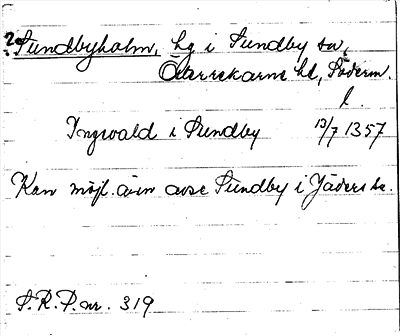 ? Sundbyholm, hg i Sundby sn,
Österrekarne hd, Söderm.
l.
Ingwald i Sundby 13/7 1357
Kan möjl. även avse Sundby i Jäders sn.
S.R.P. nr. 319